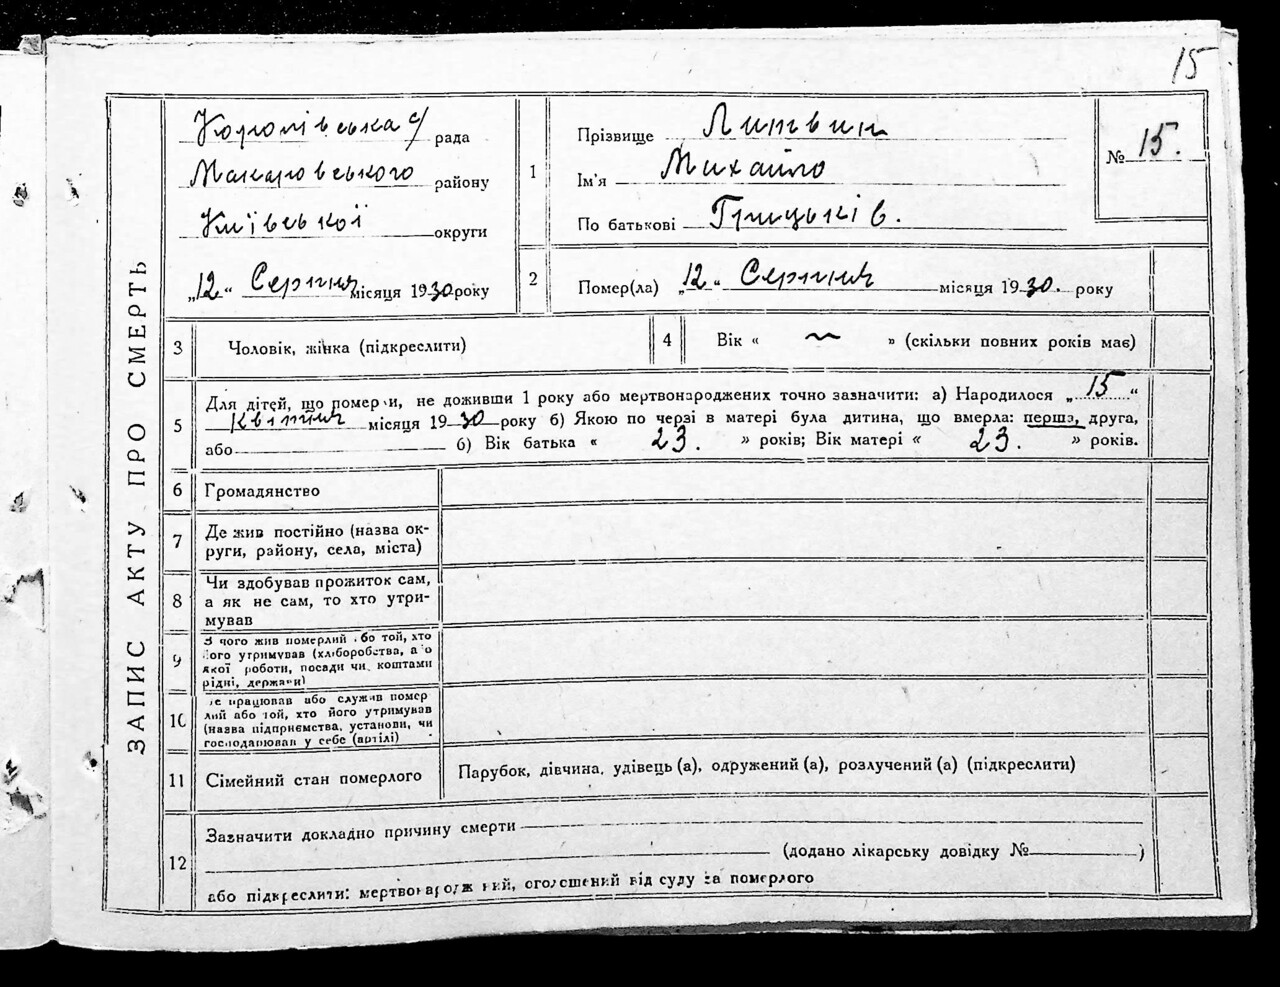 15
ЗАПИС АКТУ ПРО СМЕРТЬ
Королівська с/ рада
Макарівського району
Київської округи
„12“ Серпня місяця 1930 року
1
Прізвище Литвин
Ім'я Михайло
По батькові Грицьків.
№ 15.
2
Помер(ла) „12“ Серпня місяця 1930. року
3
Чоловік, жінка (підкреслити)
4
Вік « » (скільки повних років має)
5
Для дітей, що померли, не доживши 1 року або мертвонароджених точно зазначити: а) Народилося „15“
Квітня місяця 1930 року б) Якою по черзі в матері була дитина, що вмерла: перша, друга,
або б) Вік батька « 23. » років; Вік матері « 23. » років.
6
Громадянство
7
Де жив постійно (назва ок-
руги, району, села, міста)
8
Чи здобував прожиток сам,
а як не сам, то хто утри-
мував
9
З чого жив померлий або той, хто
його утримував (хліборобства, або
якої роботи, посади чи коштами
рідні, держави)
10
Де працював або служив помер
лий або той, хто його утримував
(назва підприємства, установи, чи
господарював у себе (артілі)
11
Сімейний стан померлого
Парубок, дівчина, удівець (а), одружений (а), розлучений (а) (підкреслити)
12
Зазначити докладно причину смерти
(додано лікарську довідку № )
або підкреслити: мертвонароджений, оголошений від суду за померлого